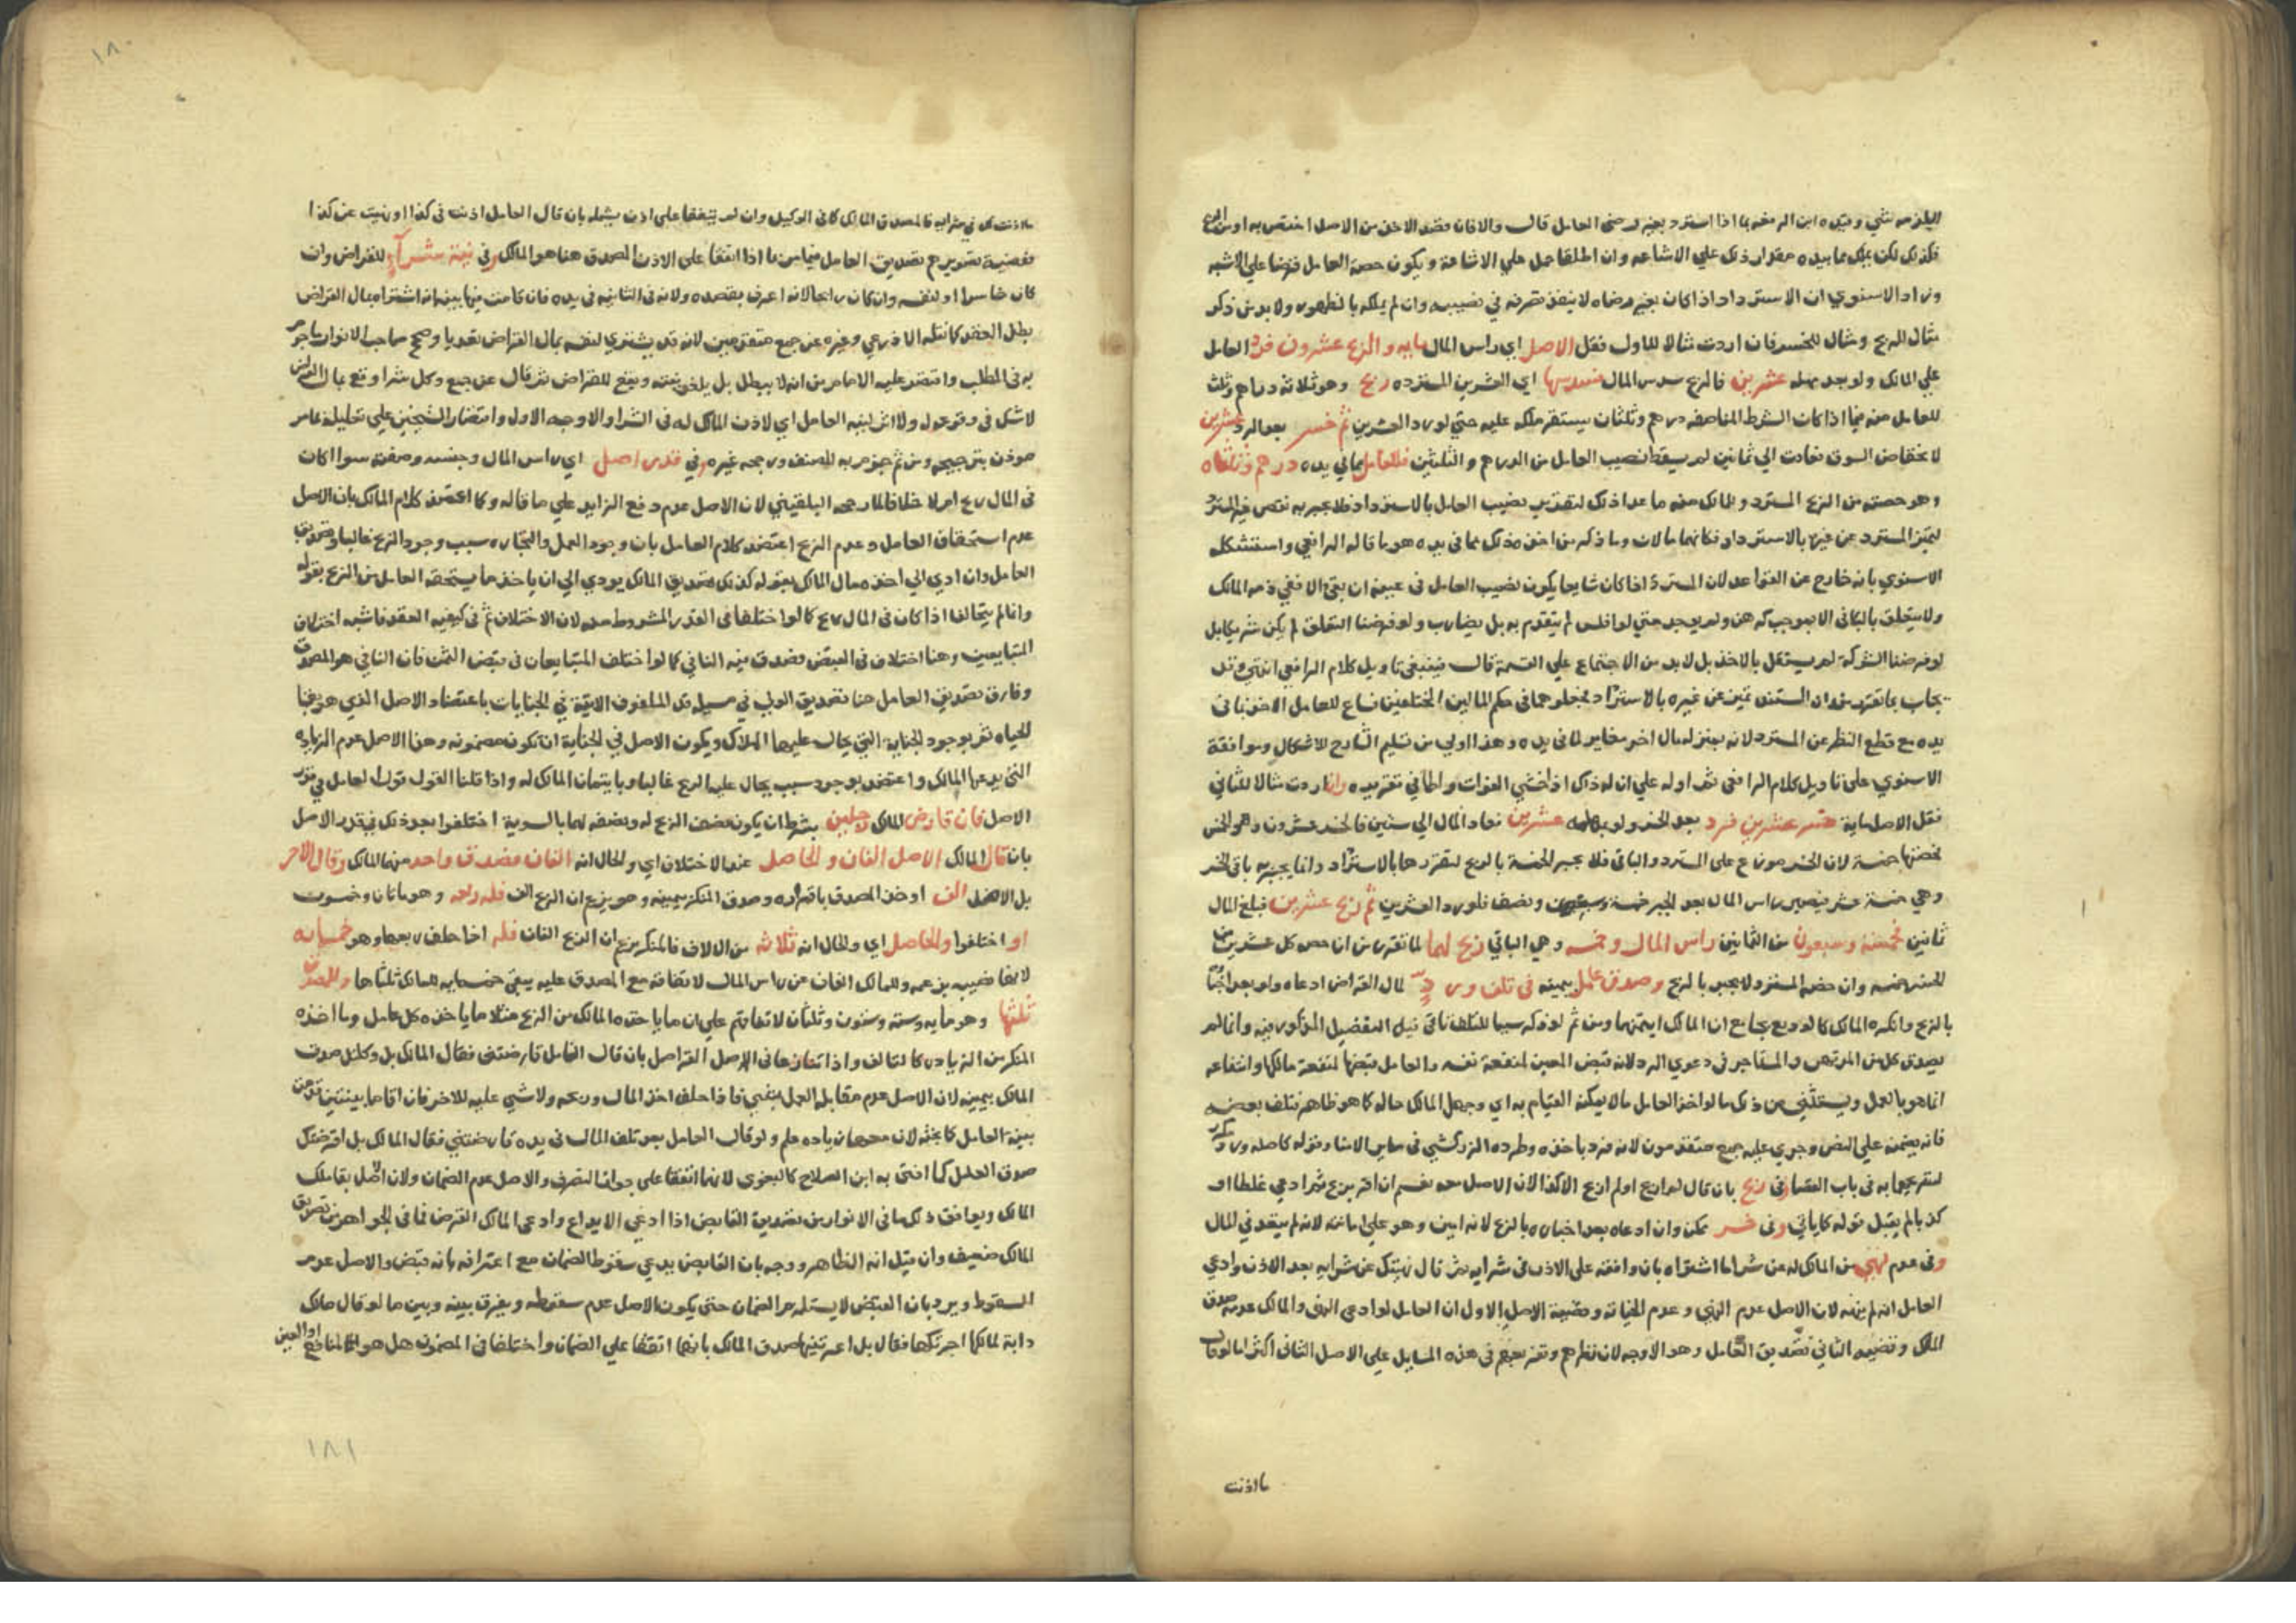 فكذلك لكن يملك مما بيده مقدار ذلك علي الاشاعة وان اطلقا حمل علي الاشاعة ويكون حصة العامل قرضا علي الاشبه
وزاد الاسنوي ان الاسترداد اذا كان بغير رضاه لا ينفذ تصرفه في نصيبه وان لم يملكه بالظهور ولا بد من ذكر
مثال للربح ومثال للخسر فان اردت مثالا للاول فقل الاصل اي راس المال مايه والربح عشرون فرد العامل
علي المالك ولو بعد مهله عشرين فالربح سدس المال فسدسها اي العشرين المسترده ربح وهو ثلاثة دراهم وثلث
للعامل منه فيما اذا كان الشرط المناصفه درهم وثلثان يستقر ملكه عليه حتي لو رد العشرين ثم خسر بعد الرد عشرين
لانخفاض السوق فعادت الي ثمانين لم يسقط نصيب العامل من الدرهم والثلثين فللعامل مما في يده درهم وثلثاه
وهو حصته من الربح المسترد وللمالك منه ما عدا ذلك لتقرر نصيب العامل بالاسترداد فلا يجبر به نقص غير المسترد
لتميز المسترد عن غيره بالاسترداد فكانهما مالان وما ذكر من اخذه ذلك مما في يده هو ما قاله الرافعي واستشكله
الاسنوي بانه خارج عن القواعد لان المسترد اذا كان شايعا يكون نصيب العامل في عينه ان بقي والا ففي ذمه المالك
ولا يتعلق بالباقي الا بموجب كرهن ولم يوجد حتي لو افلس لم يتقدم به بل يضارب ولو فرضنا التعلق لم يكن شريكا بل
لو فرضنا الشركة لم يستقل بالاخذ بل لا بد من الاجتماع علي القسمة قال فينبغي تاويل كلام الرافعي انتهي وقد
يده مع قطع النظر عن المسترد لانه بمنزله مال اخر مغاير لما في يده وهذا اولي من تسليم الشارح للاشكال وموافقة
الاسنوي علي تاويل كلام الرافعي ثم اوله علي ان له ذلك اذا خشي الفوات واطال في تقريره وان اردت مثالا للثاني
فقل الاصل ماية خسر عشرين فرد بعد الخسر ولو بمهله عشرين فعاد المال الي ستين فالخسر عشرون وهو الخمس
فحصتها خمسة لان الخسر موزع علي المسترد والباقي فلا يجبر الخمسة بالربح لتقررها بالاسترداد وانما يجبر به باقي الخسر
وهي خمسة عشر فيصير راس المال بعد الجبر خمسة وسبعين ونصف فلو رد العشرين ثم ربح عشرين فبلغ المال
ثمانين فخمسة وسبعون من الثمانين راس المال وخمسة وهي الباقي ربح لهما لما تقرر من ان حصه كل عشرين من
الخسر خمسه وان خسر المسترد لا يجبر بالربح وصدق عامل بيمينه في تلف ورد لمال القراض ادعاه ولو بعد اخباره
بالربح وانكره المالك كالوديع بجامع ان المالك ايتمنهما ومن ثم لو ذكر سببا للتلف تاتي فيه التفصيل المذكور فيه وانما لم
يصدق كل من المرتهن والمستاجر في دعوي الرد لانه قبض العين لمنفعة نفسه والعامل قبضها لمنفعة مالكها وانتفاعه
انما هو بالعمل ويستثني من ذلك ما لو اخذ العامل ما لا يمكنه القيام به اي وجهل المالك حاله كما هو ظاهر فتلف بعضه
فانه يضمنه علي النص وجري عليه جمع متقدمون لانه فرط باخذه وطرده الزركشي في ساير الامنا
لتصريحها به في باب القضا وفي ربح بان قال لم اربح او لم اربح الا كذا لان الاصل معه نعم ان اقر بربح ثم ادعي غلطا او
كذبا لم يقبل قوله كما ياتي وفي خسر ممكن وان ادعاه بعد اخباره بالربح لانه امين وهو علي امانته لانه لم يتعد في المال
وفي عدم نهي من المالك له عن شرا ما اشتراه بان وافقه علي الاذن في شرايه ثم قال نهيتك عن شرايه بعد الاذن وادعي
العامل انه لم ينهه لان الاصل عدم النهي وعدم الخيانة وقضية الاصل الاول ان العامل لو ادعي النهي والمالك عدمه صدق
المالك وقضيه الثاني تصديق العامل وهذا الاوجه لان نظرهم وتفريعهم في هذه المسايل علي الاصل الثاني اكثر اما لو قال
ما اذنت
١٨٠
ما اذنت لك في شرايه فالمصدق المالك كما في الوكيل وان لم يتفقا علي اذن يشمله بان قال العامل اذنت في كذا او نهيت عن كذا
فقضية تصويرهم تصديق العامل فيما مر بما اذا اتفقا علي الاذن المصدق هنا هو المالك وفي نية شراء للقراض وان
كان خاسرا او لنفسه وان كان رابحا لانه اعرف بقصده ولانه في الثانيه في يده فان قامت فيها بينة انه اشتراه بمال القراض
بطل العقد كما نقله الاذرعي وغيره عن جمع متقدمين لانه قد يشتري لنفسه بمال القراض تعديا وصحح صاحب الانوار ما جزم
به في المطلب واقتصر عليه الامام من انه لا يبطل بل يلغو نيته ويقع للقراض ثم قال عن جمع وكل شرا وقع بمال القراض
لا شك في وقوعه له ولا اثر لنية العامل اي لاذن المالك له في الشرا والاوجه الاول واقتصار الشيخين علي تعليله بما مر
موذن بترجيحه ومن ثم جزم به المصنف ورجحه غيره وفي قدر اصل اي راس المال وجنسه وصفته سوا كان
في المال ربح ام لا خلافا لما رجحه البلقيني لان الاصل عدم دفع الزايد علي ما قاله وكما اعتضد كلام المالك بان الاصل
عدم استحقاق العامل وعدم الربح اعتضد كلام العامل بان وجود العمل والتجاره سبب وجود الربح غالبا وتصديق
العامل وان ادي الي اخذه مال المالك بقوله كذلك تصديق المالك يودي الي ان ياخذ ما يستحقه العامل من الربح بقوله
وانما لم يتحالفا اذا كان في المال ربح كما لو اختلفا في القدر المشروط له لان الاختلاف ثم في كيفيه العقد فاشبه اختلاف
المتبايعين وهنا اختلاف في القبض فصدق فيه النافي كما لو اختلف المتبايعان في قبض الثمن فان النافي هو المصدق
وفارق تصديق العامل هنا تصديق الولي في مسيله قد الملفوف الاتية في الجنايات باعتضاد الاصل الذي هو بقا
للحياه ثم بوجود الجناية التي يحال عليها الهلاك ويكون الاصل في الجناية ان تكون مضمونه وهنا الاصل عدم الزياده
التي يدعيها المالك واعتضد بوجود سبب يحال عليه الربح غالبا وبايتمان المالك له واذا قلنا القول قول العامل في قدر
الاصل فان قارض المالك رجلين بشرط ان يكون نصف الربح له ونصفه لهما بالسوية اختلفوا بعد ذلك في قدر الاصل
بان قال المالك الاصل الفان والحاصل عند الاختلاف اي والحال انه الفان فصدق واحد منهما المالك وقال الاخر
بل الاصل الف اوخذ المصدق باقراره وصدق المنكر بيمينه وهو يزعم ان الربح الف فله ربعه وهو مايتان وخمسون
او اختلفوا والحاصل اي والحال انه ثلاثه من الالاف فالمنكر يزعم ان الربح الفان فله اذا حلف ربعها وهو خمسمايه
لانها نصيبه بزعمه وللمالك الفان عن راس المال لاتفاقه مع المصدق عليه يبقي خمسمايه للمالك ثلثاها وللمصدق
ثلثها وهو مايه وسته وستون وثلثان لاتفاقهم علي ان ما ياخذه المالك من الربح مثلا ما ياخذه كل عامل وما اخذه
المنكر من الزياده كالتالف واذا تنازعا في اصل القراض بان قال العامل قارضتني فقال المالك بل وكلتك صدق
المالك بيمينه لان الاصل عدم مقابله العمل بشي فاذا حلف اخذ المال وربحه ولا شي عليه للاخر فان اقاما بينتين قدمت
بينة العامل كما بحثه لان معها زياده علم ولو قال العامل بعد تلف المال في يده قارضتني فقال المالك بل اقرضتك
صدق العامل كما افتي به ابن الصلاح كالبغوي لانهما اتفقا علي جواز التصرف والاصل عدم الضمان ولان الاصل بقا ملك
المالك ويوافق ذلك ما في الانوار من تصديق القابض اذا ادعي الايداع وادعي المالك القرض فما في الجواهر من تصديق
المالك ضعيف وان قيل انه الظاهر ووجه بان القابض يدعي سقوط الضمان مع اعترافه بانه قبض والاصل عدم
السقوط ويرد بان القبض لا يستلزم الضمان حتي يكون الاصل عدم سقوطه ويفرق بينه وبين ما لو قال مالك
دابة لمالكها اجرتكها فقال بل اعرتنيها صدق المالك بانهما اتفقا علي الضمان واختلفا في المضمون هل هو المنافع او العين
١٨١